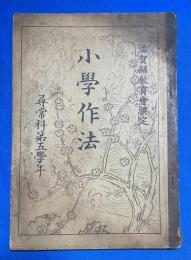 滋賀縣教育會撰定
小學作法
尋常科第五學年